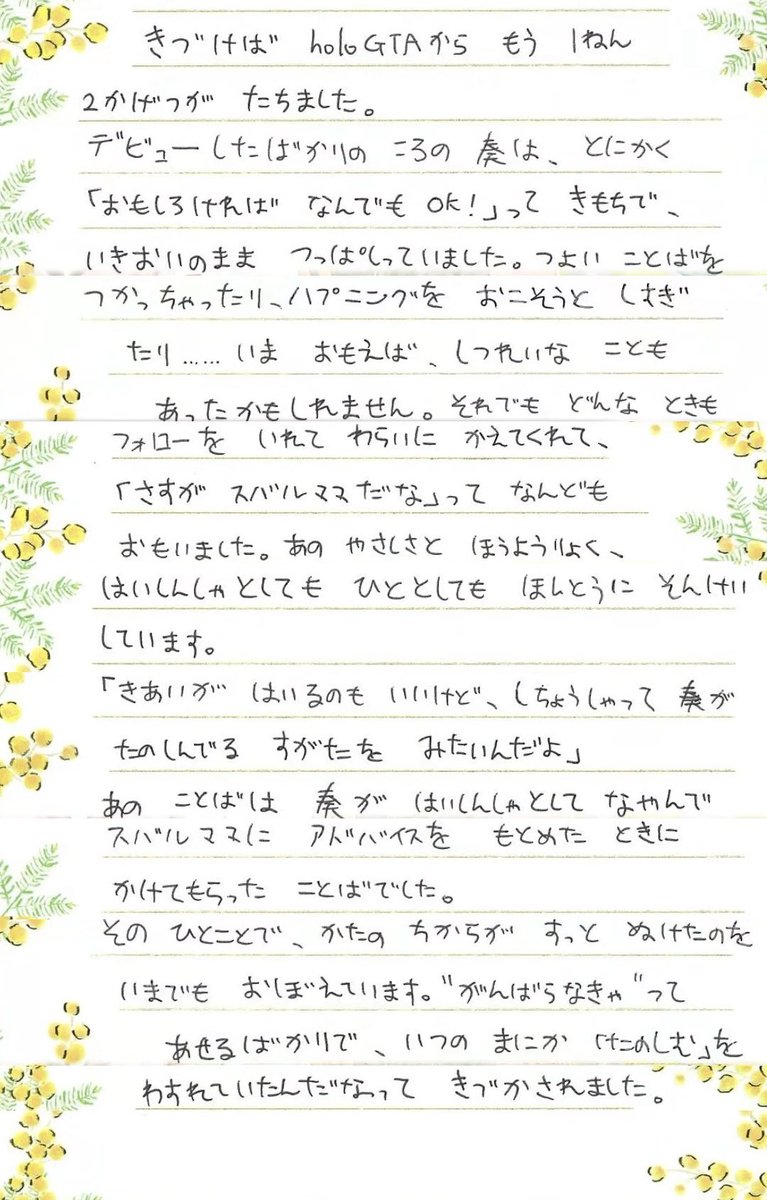 きづけば holoGTAから もう 1ねん
2かげつが たちました。
デビューしたばかりの ころの 奏は、とにかく
「おもしろければ なんでも OK!」って きもちで、
いきおいのまま つっぱしっていました。つよい ことばを
つかっちゃったり、ハプニングを おこそうと しすぎ
たり……いま おもえば、しつれいな ことも
あったかもしれません。それでも どんな ときも
フォローを いれて わらいに かえてくれて、
「さすが スバルママだな」って なんども
おもいました。あの やさしさと ほうようりょく、
はいしんしゃとしても ひととしても ほんとうに そんけい
しています。
「きあいが はいるのも いいけど、しちょうしゃって 奏が
たのしんでる すがたを みたいんだよ」
あの ことばは 奏が はいしんしゃとして なやんで
スバルママに アドバイスを もとめた ときに
かけてもらった ことばでした。
その ひとことで、かたの ちからが すっと ぬけたのを
いまでも おぼえています。"がんばらなきゃ"って
あせるばかりで、いつの まにか「たのしむ」を
わすれていたんだなって きづかされました。